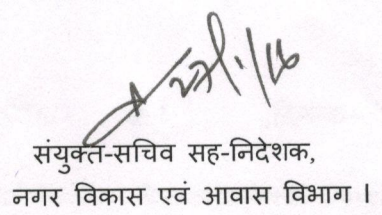 संयुक्त-सचिव सह-निदेशक,
नगर विकास एवं आवास विभाग ।